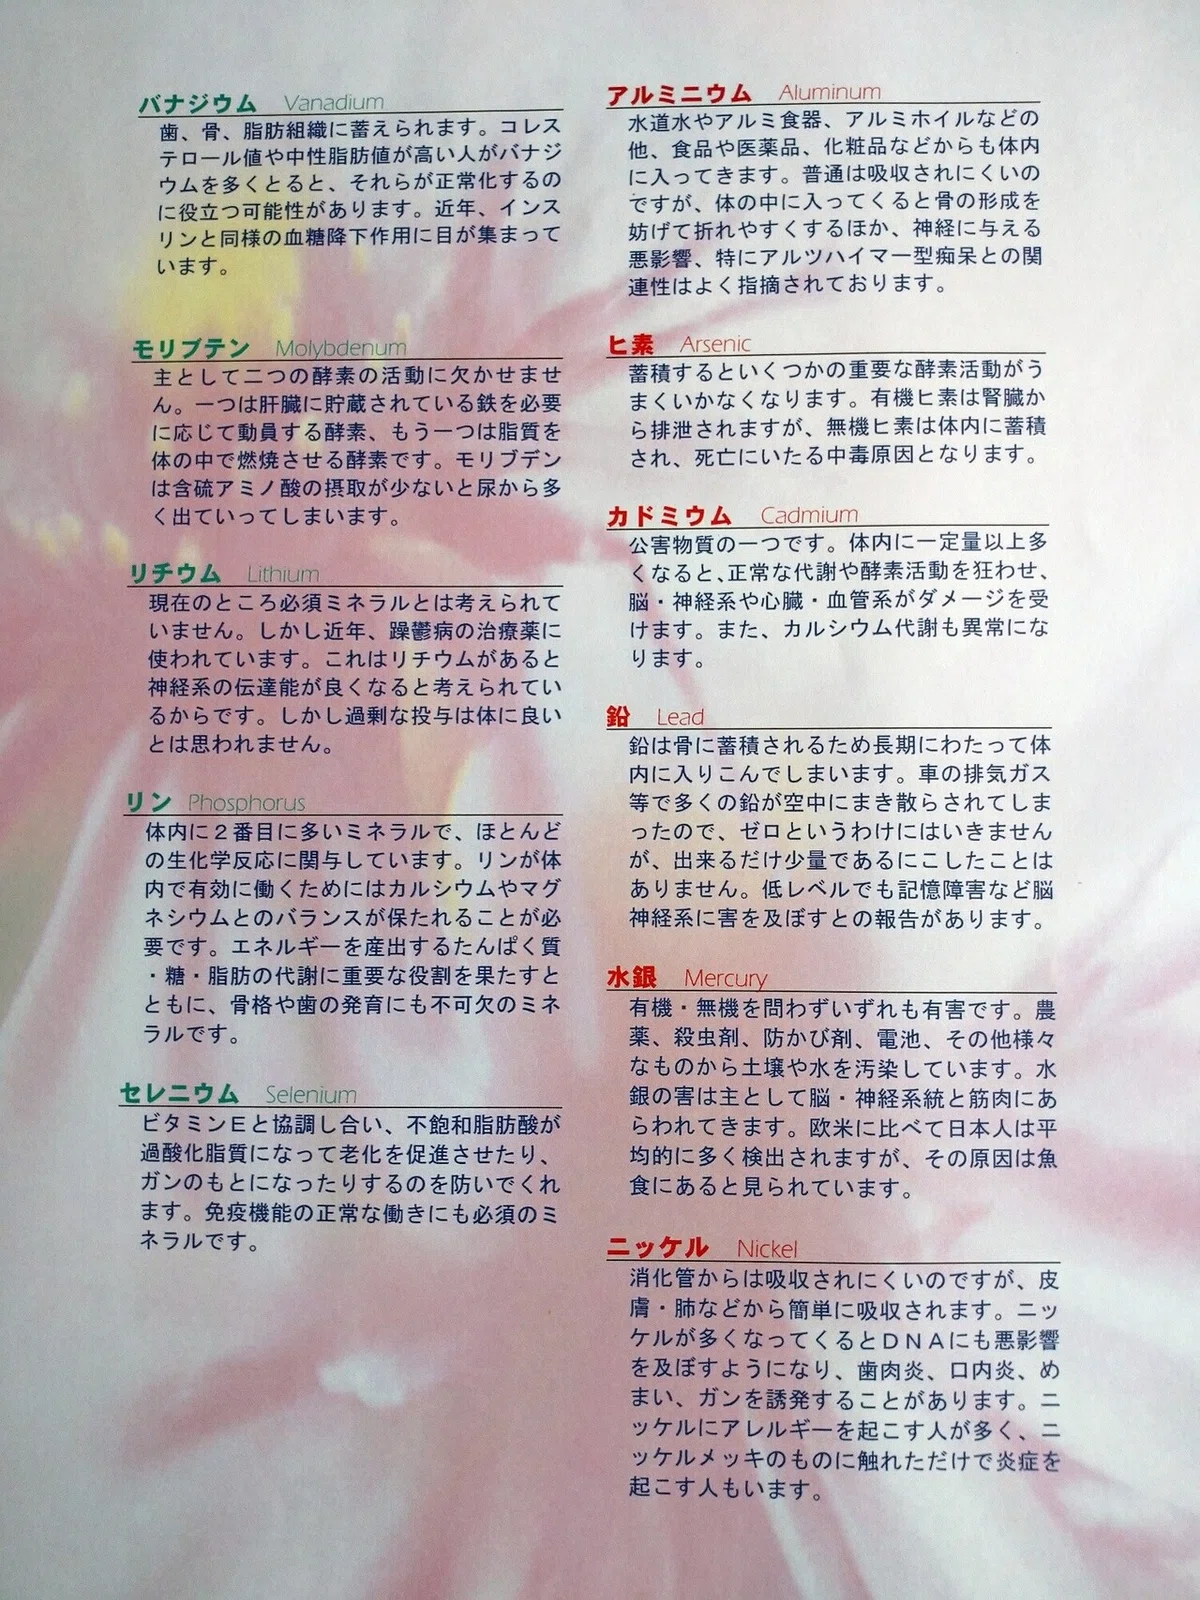 バナジウム Vanadium
歯、骨、脂肪組織に蓄えられます。コレス
テロール値や中性脂肪値が高い人がバナジ
ウムを多くとると、それらが正常化するの
に役立つ可能性があります。近年、インス
リンと同様の血糖降下作用に目が集まって
います。
モリブテン Molybdenum
主として二つの酵素の活動に欠かせませ
ん。一つは肝臓に貯蔵されている鉄を必要
に応じて動員する酵素、もう一つは脂質を
体の中で燃焼させる酵素です。モリブデン
は含硫アミノ酸の摂取が少ないと尿から多
く出ていってしまいます。
リチウム Lithium
現在のところ必須ミネラルとは考えられて
いません。しかし近年、躁鬱病の治療薬に
使われています。これはリチウムがあると
神経系の伝達能が良くなると考えられてい
るからです。しかし過剰な投与は体に良い
とは思われません。
リン Phosphorus
体内に２番目に多いミネラルで、ほとんど
の生化学反応に関与しています。リンが体
内で有効に働くためにはカルシウムやマグ
ネシウムとのバランスが保たれることが必
要です。エネルギーを産出するたんぱく質
・糖・脂肪の代謝に重要な役割を果たすと
ともに、骨格や歯の発育にも不可欠のミネ
ラルです。
セレニウム Selenium
ビタミンＥと協調し合い、不飽和脂肪酸が
過酸化脂質になって老化を促進させたり、
ガンのもとになったりするのを防いでくれ
ます。免疫機能の正常な働きにも必須のミ
ネラルです。
アルミニウム Aluminum
水道水やアルミ食器、アルミホイルなどの
他、食品や医薬品、化粧品などからも体内
に入ってきます。普通は吸収されにくいの
ですが、体の中に入ってくると骨の形成を
妨げて折れやすくするほか、神経に与える
悪影響、特にアルツハイマー型痴呆との関
連性はよく指摘されております。
ヒ素 Arsenic
蓄積するといくつかの重要な酵素活動がう
まくいかなくなります。有機ヒ素は腎臓か
ら排泄されますが、無機ヒ素は体内に蓄積
され、死亡にいたる中毒原因となります。
カドミウム Cadmium
公害物質の一つです。体内に一定量以上多
くなると、正常な代謝や酵素活動を狂わせ、
脳・神経系や心臓・血管系がダメージを受
けます。また、カルシウム代謝も異常にな
ります。
鉛 Lead
鉛は骨に蓄積されるため長期にわたって体
内に入りこんでしまいます。車の排気ガス
等で多くの鉛が空中にまき散らされてしま
ったので、ゼロというわけにはいきません
が、出来るだけ少量であるにこしたことは
ありません。低レベルでも記憶障害など脳
神経系に害を及ぼすとの報告があります。
水銀 Mercury
有機・無機を問わずいずれも有害です。農
薬、殺虫剤、防かび剤、電池、その他様々
なものから土壌や水を汚染しています。水
銀の害は主として脳・神経系統と筋肉にあ
らわれてきます。欧米に比べて日本人は平
均的に多く検出されますが、その原因は魚
食にあると見られています。
ニッケル Nickel
消化管からは吸収されにくいのですが、皮
膚・肺などから簡単に吸収されます。ニッ
ケルが多くなってくるとＤＮＡにも悪影響
を及ぼすようになり、歯肉炎、口内炎、め
まい、ガンを誘発することがあります。ニ
ッケルにアレルギーを起こす人が多く、ニ
ッケルメッキのものに触れただけで炎症を
起こす人もいます。